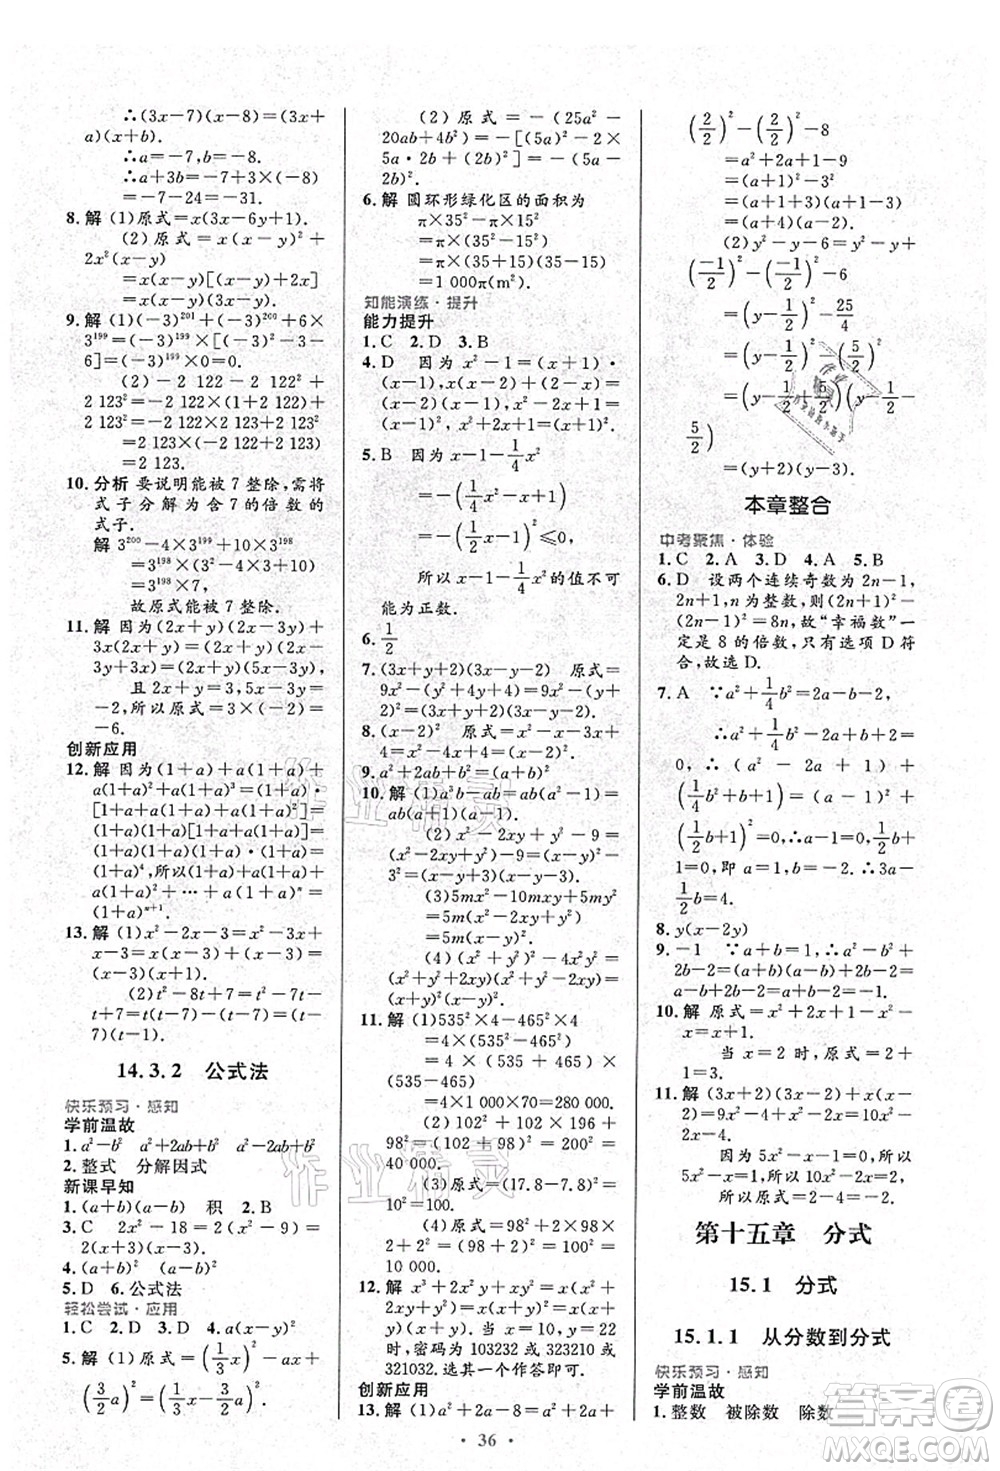 ∴(3x-7)(x-8)=(3x+
a)(x+b).
∴a=-7,b=-8.
∴a+3b=-7+3×(-8)
=-7-24=-31.
8. 解 (1)原式=x(3x-6y+1).
(2)原式=x(x-y)²+
2x²(x-y)
=x(x-y)[(x-y)+2x]
=x(x-y)(3x-y).
9. 解 (1)(-3)²⁰¹+(-3)²⁰⁰+6×
3¹⁹⁹=(-3)¹⁹⁹×[(-3)²+(-3)-
6]=(-3)¹⁹⁹×0=0.
(2)-2 122-2 122×2+
2 123²=-2 122×(1+2 122)+
2 123²=-2 122×2 123+2 123²
=2 123×(-2 122+2 123)
=2 123.
10. 分析 要说明能被7整除,需将
式子分解为含7的倍数的
式子.
解 3²⁰⁰-4×3¹⁹⁹+10×3¹⁹⁸
=3¹⁹⁸×(3²-4×3+10)
=3¹⁹⁸×7,
故原式能被7整除.
11. 解 因为(2x+y)(2x-3y)+
3x(2x+y)=(2x+y)(2x-
3y+3x)=(2x+y)(5x-3y),
且2x+y=3,5x-3y=
-2,所以原式=3×(-2)=
-6.
创新应用
12. 解 因为1+a+a(1+a)+
a(1+a)²+a(1+a)³=(1+a)·
[1+a+a(1+a)+a(1+a)²]=
(1+a){(1+a)[1+a+a(1+
a)]}=(1+a)(1+a)(1+a+
a)(1+a)=(1+a)(1+a)·
(1+a)(1+a)(1+a)=(1+
a)⁴,所以1+a+a(1+a)+
a(1+a)²+…+a(1+a)ⁿ=
(1+a)ⁿ⁺¹.
13. 解 (1)x²-2x-3=x²+
x-3x-3=x(x+1)-3(x+
1)=(x-3)(x+1).
(2)t²-8t+7=t²-t-
7t+7=t(t-1)-7(t-1)=(t-
7)(t-1).
14.3.2 公式法
快乐预习·感知
学前温故
1. a²-b² a²+2ab+b² a²-2ab+b²
2. 整式 分解因式
新课早知
1. (a+b)(a-b) 积 2. B
3. C 2x²-18=2(x²-9)=
2(x+3)(x-3).
4. (a+b)² (a-b)²
5. D 6. 公式法
轻松尝试·应用
1. C 2. D 3. D 4. a(x-a)²
5. 解 (1)原式=(1/3 x)²-ax+
(3/2 a)²=(1/3 x-3/2 a)².
(2)原式=-(25a²-
20ab+4b²)=-[(5a)²-2×
5a·2b+(2b)²]=-(5a-
2b)².
6. 解 圆环形绿化区的面积为
π×35²-π×15²
=π×(35²-15²)
=π×(35+15)(35-15)
=1 000π(m²).
知能演练·提升
能力提升
1. C 2. D 3. B
4. D 因为x²-1=(x+1)·
(x-1),x(x-2)+(2-x)=
(x-2)(x-1),所以它们的公因
式是(x-1).
5. B 因为x-1-1/4x²
=-(1/4x²-x+1)
=-(1/2x-1)²≤0,
所以x-1-1/4x²的值不可
能为正数.
6. 1/2
7. (3x+y+2)(3x-y) 原式=
9x²-(y+1)²-(6x-y-1)=
(3x+y+2)(3x-y).
8. (x-2)² 原式=x²-x-3x+
4=x²-4x+4=(x-2)².
9. a²+2ab+b²=(a+b)²
10. 解 (1)a³b-ab=ab(a+
1)(a-1).
(2)x²-2xy+y²-9=
(x-y)²-9=(x-y+3)·
(x-y-3).
(3)5mx²-10mxy+5my²
=5m(x²-2xy+y²)
=5m(x-y)².
(4)(x²+y²)²-4x²y²=
(x²+y²+2xy)(x²+y²-2xy)=
(x+y)²(x-y)².
11. 解 (1)535²×4-465²×4
=4×(535²-465²)
=4×(535+465)×
(535-465)
=4×1 000×70=280 000.
(2)102²+102×196+
98²=(102+98)²=200²=
40 000.
(3)原式=(17.8-7.8)²
=10²=100.
(4)原式=98²+2×98×
2+2²=(98+2)²=100²=
10 000.
12. 解 x³+2x²y+xy²=x(x²+
2xy+y²)=x(x+y)².
当x=10,y=22
时,密码为103232或323210或
321032.选其一个作答即可.
创新应用
13. 解 (1)a²-2a-8=a²-2a+
(2/2)²-(2/2)²-8
=a²-2a+1-9
=(a-1)²-3²
=(a-1+3)(a-1-3)
=(a+2)(a-4).
(2)y²-y-6=y²-y+
(-1/2)²-(-1/2)²-6
=(y-1/2)²-25/4
=(y-1/2)²-(5/2)²
=(y-1/2+5/2)(y-1/2-
5/2)
=(y+2)(y-3).
本章整合
中考聚焦·体验
1. C 2. A 3. D 4. A 5. B
6. D 设两个连续奇数为2n-1,
2n+1,n为整数,则(2n+1)²-
(2n-1)²=8n,故“幸福数”一
定是8的倍数,只有选项D符
合,故选D.
7. A ∵a²+1/4b²=2a-b-2,
∴a²+1/4b²-2a+b+2
=0,∴(a²-2a+1)+
(1/4b²+b+1)=0,∴(a-1)²+
(1/2b+1)²=0,∴a-1=0,1/2b+
1=0,即a=1,b=-2,∴3a-
1/2b=4.
8. y(x-2y)
9. -1 ∵a+b=1,∴a²-b²+
2b-2=(a+b)(a-b)+2b-
2=a-b+2b-2=a+b-2=
1-2=-1.
10. 解 原式=x²-1+2x-x²
=2x-1.
当x=1/2时,原式=2×1/2-
1=0.
11. 解 (3x+2)(3x-2)-5x(x-
1)-(2x-1)²
=9x²-4-5x²+5x-4x²+
4x-1=9x-5.
因为x²-10x=0,所以
x(x-10)=0,所以
x₁=0,x₂=10,
所以原式=-5或85.
第十五章 分式
15.1 分式
15.1.1 从分数到分式
快乐预习·感知
学前温故
1. 整数 被除数 除数
· 36 ·
作业精灵
作业精灵
答案圈
MXQE.COM